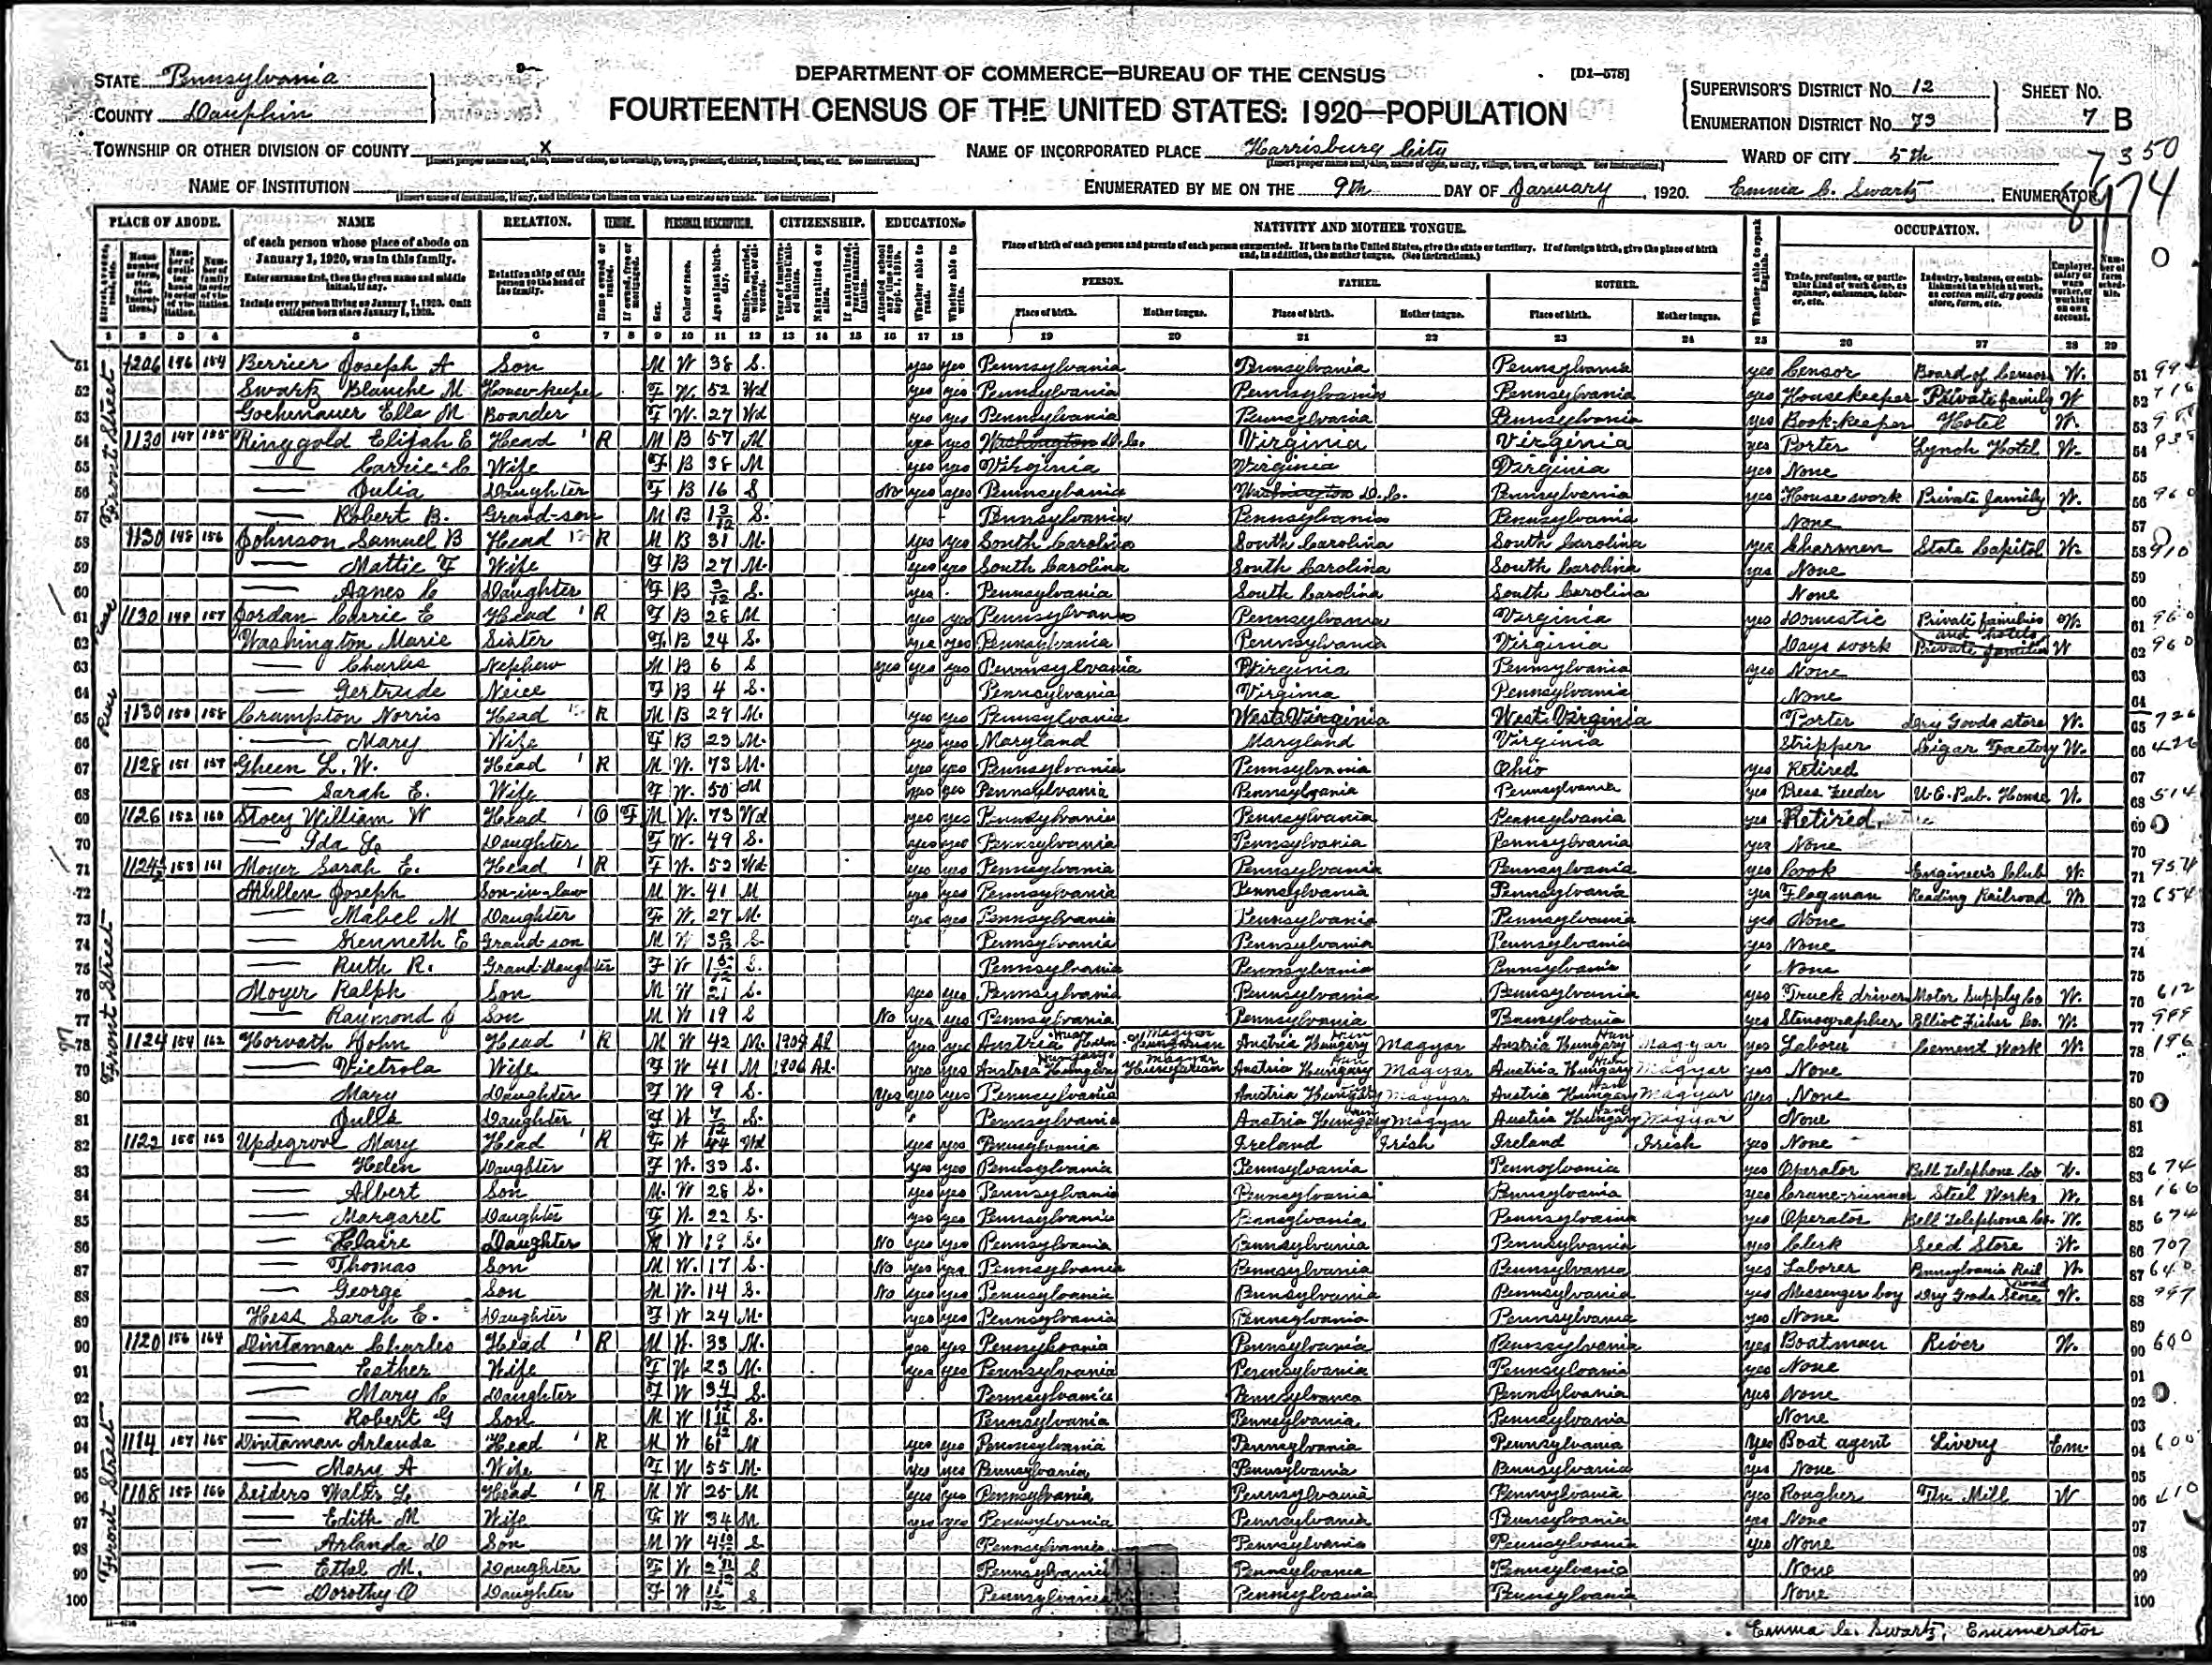 STATE Pennsylvania
COUNTY Dauphin
DEPARTMENT OF COMMERCE—BUREAU OF THE CENSUS
[D1—578]
FOURTEENTH CENSUS OF THE UNITED STATES: 1920—POPULATION
SUPERVISOR'S DISTRICT No. 12
ENUMERATION DISTRICT No. 73
SHEET No. 7 B
TOWNSHIP OR OTHER DIVISION OF COUNTY X
NAME OF INCORPORATED PLACE Harrisburg City
WARD OF CITY 5th
7350
NAME OF INSTITUTION
ENUMERATED BY ME ON THE 9th DAY OF January, 1920. Emma C. Swartz, ENUMERATOR
PLACE OF ABODE. NAME RELATION. TENURE. PERSONAL DESCRIPTION. CITIZENSHIP. EDUCATION. NATIVITY AND MOTHER TONGUE. OCCUPATION.
of each person whose place of abode on January 1, 1920, was in this family.
Enter surname first, then the given name and middle initial, if any.
Include every person living on January 1, 1920. Omit children born since January 1, 1920.
Relationship of this person to the head of the family.
Place of birth of each person and parents of each person enumerated. If born in the United States, give the state or territory. If of foreign birth, give the place of birth and, in addition, the mother tongue. (See instructions.)
PERSON. FATHER. MOTHER.
Place of birth. Mother tongue. Place of birth. Mother tongue. Place of birth. Mother tongue.
1 2 3 4 5 6 7 8 9 10 11 12 13 14 15 16 17 18 19 20 21 22 23 24 25 26 27 28 29
51 1206 146 154 Berrier Joseph A Son M W 38 S. yes yes Pennsylvania Pennsylvania Pennsylvania yes Censor Board of Censors W. 51
52 Swartz Blanche M House-keeper F W. 52 Wd yes yes Pennsylvania Pennsylvania Pennsylvania yes Housekeeper Private family W 52
53 Gochenauer Ella M Boarder F W. 27 Wd yes yes Pennsylvania Pennsylvania Pennsylvania yes Book-keeper Hotel W. 53
54 1130 147 155 Ringgold Elijah E Head R M B 57 M yes yes Washington D.C. Virginia Virginia yes Porter Lynch Hotel W. 54
55 — Carrie C Wife F B 38 M yes yes Virginia Virginia Virginia yes None 55
56 — Julia Daughter F B 16 S No yes yes Pennsylvania Washington D.C. Pennsylvania yes House work Private family W. 56 960
57 — Robert B. Grand-son M B 1 3/12 S. Pennsylvania Pennsylvania Pennsylvania None 57
58 1130 148 156 Johnson Samuel B Head R M B 31 M. yes yes South Carolina South Carolina South Carolina yes Charmen State Capitol W. 58 910
59 — Mattie F Wife F B 27 M. yes yes South Carolina South Carolina South Carolina yes None 59
60 — Agnes C Daughter F B 3/12 S. yes Pennsylvania South Carolina South Carolina None 60
61 1130 149 157 Jordan Carrie E Head R F B 28 M yes yes Pennsylvania Pennsylvania Virginia yes Domestic Private families and hotels W. 61 960
62 Washington Marie Sister F. B 24 S. yes yes Pennsylvania Pennsylvania Virginia Days work Private families W 62 960
63 — Charles Nephew M B 6 S yes yes yes Pennsylvania Virginia Pennsylvania yes None 63
64 — Gertrude Neice F B 4 S. Pennsylvania Virginia Pennsylvania None 64
65 1130 150 158 Crumpton Norris Head R M B 29 M. yes yes Pennsylvania West Virginia West Virginia Porter Dry Goods store W. 65 726
66 — Mary Wife F B 23 M. yes yes Maryland Maryland Virginia Stripper Cigar Factory W. 66 426
67 1128 151 159 Gheen L. W. Head R M W. 73 M. yes yes Pennsylvania Pennsylvania Ohio yes Retired 67
68 — Sarah E. Wife F W. 50 M yes yes Pennsylvania Pennsylvania Pennsylvania yes Press Feeder U.E. Pub. House W. 68 514
69 1126 152 160 Stoey William W Head O F M W. 73 Wd yes yes Pennsylvania Pennsylvania Pennsylvania yes Retired. 69
70 — Ida L. Daughter F W. 49 S. yes yes Pennsylvania Pennsylvania Pennsylvania yes None 70
71 1124½ 153 161 Moyer Sarah E. Head R F W. 52 Wd. yes yes Pennsylvania Pennsylvania Pennsylvania yes Cook Engineers Club W. 71 954
72 Mullen Joseph Son-in-law M W. 41 M yes yes Pennsylvania Pennsylvania Pennsylvania yes Flagman Reading Railroad W 72 654
73 — Mabel M Daughter F W. 27 M. yes yes Pennsylvania Pennsylvania Pennsylvania yes None 73
74 — Kenneth E Grand-son M W S. Pennsylvania Pennsylvania Pennsylvania yes None 74
75 — Ruth R. Grand-Daughter F W S. Pennsylvania Pennsylvania Pennsylvania None 75
76 Moyer Ralph Son M W 21 S. yes yes Pennsylvania Pennsylvania Pennsylvania yes Truck driver Motor Supply Co W. 76 612
77 — Raymond J Son M W 19 S No yes yes Pennsylvania Pennsylvania Pennsylvania yes Stenographer Elliot Fisher Co. W. 77
78 1124 154 162 Horvath John Head R M W 42 M. 1909 Al yes yes Austria Hungary Magyar Austria Hungary Magyar Austria Hungary Magyar yes Laborer Cement Work W. 78 196
79 — Vietrola Wife F W 41 M 1906 Al. yes yes Austria Hungary Magyar Austria Hungary Magyar Austria Hungary Magyar yes None 79
80 — Mary Daughter F W 9 S. Yes yes yes Pennsylvania Austria Hungary Magyar Austria Hungary Magyar yes None 80
81 — Julia Daughter F W 7/12 S. Pennsylvania Austria Hungary Magyar Austria Hungary Magyar None 81
82 1122 155 163 Updegrove Mary Head R F W 44 Wd yes yes Pennsylvania Ireland Irish Ireland Irish yes None 82
83 — Helen Daughter F W. 33 S. yes yes Pennsylvania Pennsylvania Pennsylvania yes Operator Bell Telephone Co W. 83 674
84 — Albert Son M. W 28 S. yes yes Pennsylvania Pennsylvania Pennsylvania yes Crane-runner Steel Works W. 84 166
85 — Margaret Daughter F W. 22 S. yes yes Pennsylvania Pennsylvania Pennsylvania yes Operator Bell Telephone Co. W. 85 674
86 — Claire Daughter W 19 S. No yes yes Pennsylvania Pennsylvania Pennsylvania yes Clerk Seed Store W. 86 707
87 — Thomas Son M W. 17 S. No yes yes Pennsylvania Pennsylvania Pennsylvania yes Laborer Pennsylvania Rail road W. 87 640
88 — George Son M W. 14 S. No yes yes Pennsylvania Pennsylvania Pennsylvania yes Messenger boy Dry Goods Store W. 88
89 Hess Sarah E. Daughter F W 24 M. yes yes Pennsylvania Pennsylvania Pennsylvania yes None 89
90 1120 156 164 Dintaman Charles Head R M W. 33 M. yes yes Pennsylvania Pennsylvania Pennsylvania yes Boatman River W. 90 600
91 — Esther Wife F W 23 M. yes yes Pennsylvania Pennsylvania Pennsylvania yes None 91
92 — Mary C Daughter F W 3 4/12 S. Pennsylvania Pennsylvania Pennsylvania yes None 92
93 — Robert G Son M W 1 11/12 S. Pennsylvania Pennsylvania Pennsylvania None 93
94 1114 157 165 Dintaman Arlanda Head R M W 61 M yes yes Pennsylvania Pennsylvania Pennsylvania yes Boat agent Livery Em. 94 600
95 — Mary A Wife F W 55 M. yes yes Pennsylvania Pennsylvania Pennsylvania yes None 95
96 1108 158 166 Seiders Walter L. Head R M W 25 M yes yes Pennsylvania Pennsylvania Pennsylvania yes Rougher Tin Mill W 96
97 — Edith M Wife F W 34 M yes yes Pennsylvania Pennsylvania Pennsylvania yes None 97
98 — Arlanda D Son M W S Pennsylvania Pennsylvania Pennsylvania yes None 98
99 — Ethel M. Daughter F W 2 11/12 S Pennsylvania Pennsylvania Pennsylvania None 99
100 — Dorothy O Daughter F W 11/12 S Pennsylvania Pennsylvania Pennsylvania None 100
Front Street
Front Street
Front Street
Emma C. Swartz, Enumerator